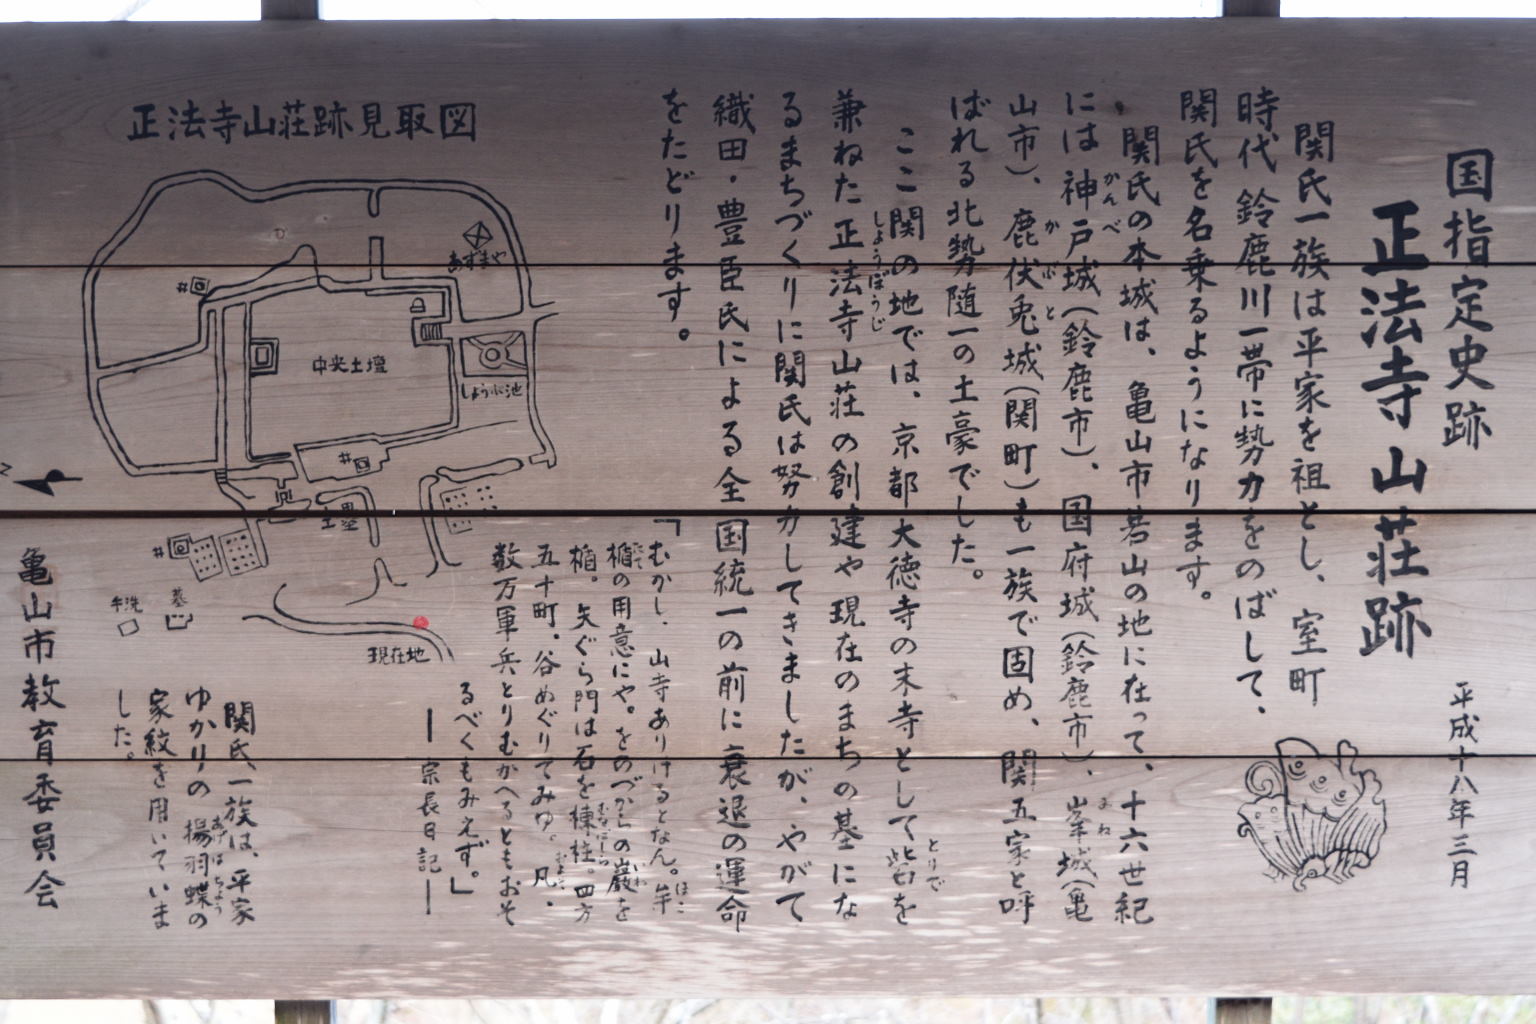 国指定史跡
正法寺山荘跡
平成十八年三月
関氏一族は平家を祖とし、室町
時代 鈴鹿川一帯に勢力をのばして、
関氏を名乗るようになります。
関氏の本城は、亀山市若山の地に在って、十六世紀
には神戸城(鈴鹿市)、国府城(鈴鹿市)、峯城(亀
かんべ
みね
山市)、鹿伏兎城(関町)も一族で固め、関五家と呼
かぶと
ばれる北勢随一の土豪でした。
ここ関の地では、京都大徳寺の末寺として砦を
とりで
兼ねた正法寺山荘の創建や現在のまちの基にな
しょうぼうじ
るまちづくりに関氏は努力してきましたが、やがて
織田・豊臣氏による全国統一の前に衰退の運命
をたどります。
「むかし、山寺ありけるとなん。鉾
ほこ
楯の用意にや。をのづからの巌を
たて
いわ
楯。矢ぐら門は石を棟柱。四方
五十町、谷めぐりてみゆ。凡、
およそ
数万軍兵とりむかへるともおそ
るべくもみえず。」
―宗長日記―
正法寺山荘跡見取図
あずまや
井
中央土壇
しょうぶ池
井
土塁
井
墓
手洗
現在地
関氏一族は、平家
ゆかりの揚羽蝶の
あげはちょう
家紋を用いていま
した。
亀山市教育委員会